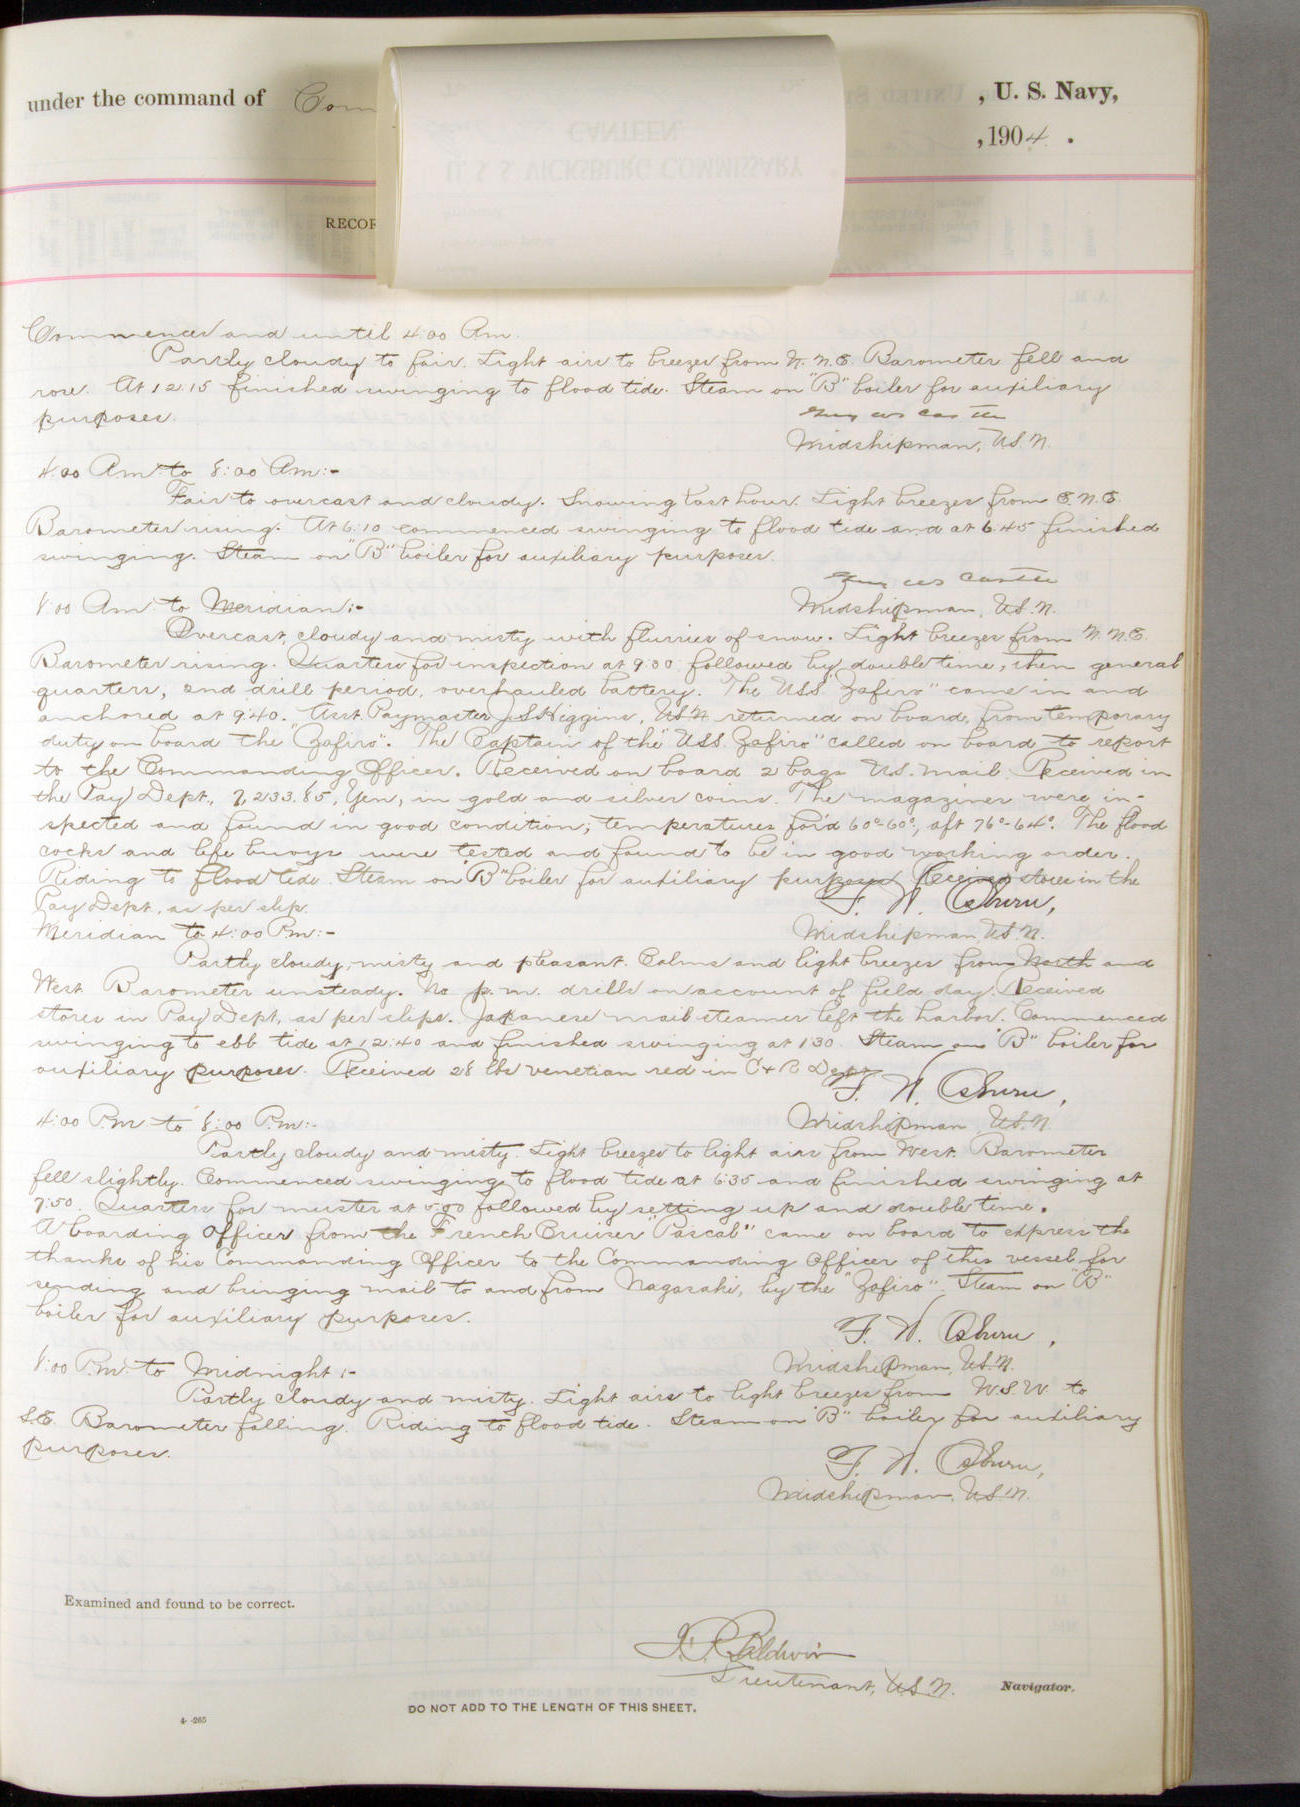 under the command of Com
, U. S. Navy,
, 1904 .
CANTEEN.
U. S. S. VICKSBURG COMMISSARY
RECOR
Commences and until 4:00 Am.
Partly cloudy to fair. Light airs to breezes from N.N.E. Barometer fell and
rose. At 12:15 finished swinging to flood tide. Steam on "B" boiler for auxiliary
purposes.
Midshipman, U.S.N.
4:00 Am. to 8:00 Am:-
Fair to overcast and cloudy. Snowing last hour. Light breezes from E.N.E.
Barometer rising. At 6:10 commenced swinging to flood tide and at 6:45 finished
swinging. Steam on "B" boiler for auxiliary purposes.
8:00 Am to Meridian:-
Midshipman, U.S.N.
Overcast, cloudy and misty with flurries of snow. Light breezes from N.N.E.
Barometer rising. Quarters for inspection at 9:00 followed by double time, then general
quarters, 2nd drill period, overhauled battery. The U.S.S. "Zafiro" came in and
anchored at 9:40. Asst. Paymaster J.S. Higgins, U.S.N. returned on board, from temporary
duty on board the "Zafiro". The Captain of the "U.S.S. Zafiro" called on board to report
to the Commanding Officer. Received on board 2 bags U.S. mail. Received in
the Pay Dept., 7,233.85, Yen, in gold and silver coins. The magazines were in-
spected and found in good condition; temperatures for'd 60°-60°, aft 76°-64°. The flood
cocks and life buoys were tested and found to be in good working order.
Riding to flood tide. Steam on "B" boiler for auxiliary purposes. Received stores in the
Pay Dept., as per slip.
F. N. Osburn,
Meridian to 4:00 P.m:-
Midshipman U.S.N.
Partly cloudy, misty and pleasant. Calms and light breezes from North and
West. Barometer unsteady. No p.m. drills on account of field day. Received
stores in Pay Dept, as per slips. Japanese mail steamer left the harbor. Commenced
swinging to ebb tide at 12:40 and finished swinging at 1:30. Steam on "B" boiler for
auxiliary purposes. Received 28 lbs venetian red in C & R Dept.
F. N. Osburn,
4:00 P.m to 8:00 P.m:-
Midshipman U.S.N.
Partly cloudy and misty. Light breezes to light airs from West. Barometer
fell slightly. Commenced swinging to flood tide at 6:35 and finished swinging at
7:50. Quarters for muster at 5:00 followed by setting up and double time.
A boarding Officer from the French Cruiser "Pascal" came on board to express the
thanks of his Commanding Officer to the Commanding Officer of this vessel for
sending and bringing mail to and from Nagasaki, by the "Zafiro". Steam on "B"
boiler for auxiliary purposes.
F. N. Osburn,
8:00 P.m. to Midnight:-
Midshipman, U.S.N.
Partly cloudy and misty. Light airs to light breezes from W.S.W. to
S.E. Barometer falling. Riding to flood tide. Steam on "B" boiler for auxiliary
purposes.
F. N. Osburn,
Midshipman, U.S.N.
Examined and found to be correct.
Baldwin
Lieutenant, U.S.N. Navigator.
DO NOT ADD TO THE LENGTH OF THIS SHEET.
4--265